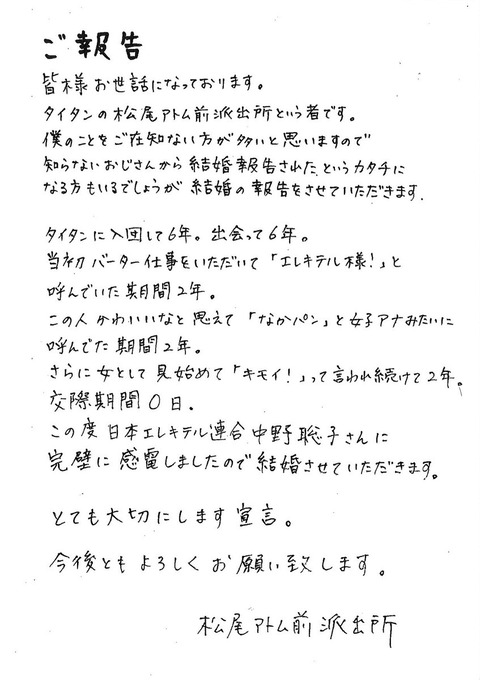 ご報告
皆様お世話になっております。
タイタンの松尾アトム前派出所という者です。
僕のことをご在知ない方が多いと思いますので
知らないおじさんから結婚報告された、というカタチに
なる方もいるでしょうが結婚の報告をさせていただきます。
タイタンに入団して6年。出会って6年。
当初バーター仕事をいただいて「エレキテル様!」と
呼んでいた期間2年。
この人かわいいなと思えて「なかパン」と女子アナみたいに
呼んでた期間2年。
さらに女として見始めて「キモイ!」って言われ続けて2年。
交際期間0日.
この度日本エレキテル連合中野聡子さんに
完璧に感電しましたので結婚させていただきます。
とても大切にします宣言。
今後ともよろしくお願い致します。
松尾アトム前派出所